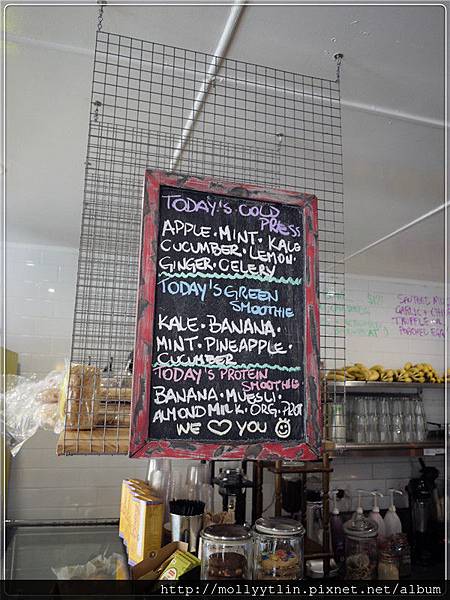 TODAY'S COLD
PRESS
APPLE • MINT • KALE
CUCUMBER • LEMON
GINGER • CELERY
TODAY'S GREEN
SMOOTHIE
KALE • BANANA •
MINT • PINEAPPLE •
CUCUMBER
TODAY'S PROTEIN
SMOOTHIE
BANANA • MUESLI •
ALMOND MILK • ORG. PROT
WE ♡ YOU
GARLIC &
TRUFFLE
POACHED EGG
http://mollyytlin.pixnet.net/album